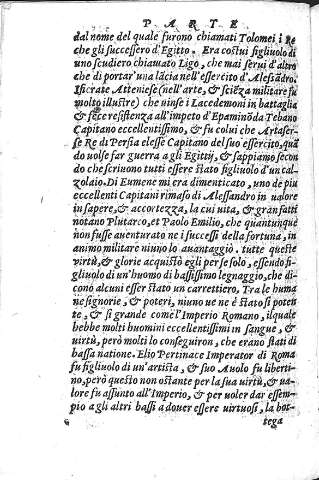 PARTE
dal nome del quale furono chiamati Tolomei i Re
che gli successero d'Egitto. Era costui figliuolo di
uno scudiero chiauato Ligo, che mai seruì d'altro
che di portar'una lācia nell'essercito d'Alessādro.
Ificrate Atteniese (nell'arte, & sciēza militare fu
molto illustre) che uinse i Lacedemoni in battaglia
& fece resistenza all'impeto d'Epaminōda Tebano
Capitano eccellentissimo, & fu colui che Artaser-
se Re di Persia elesse Capitano del suo essercito, quā
do uolse far guerra a gli Egittij, & sappiamo secon
do che scriuono tutti essere stato figliuolo d'un cal-
zolaio. Di Eumene mi era dimenticato, uno de piu
eccellenti Capitani rimaso di Alessandro in ualore
in sapere, & accortezza, la cui uita, & gran fatti
notano Plutarco, et Paolo Emilio, che quantunque
non fusse auenturato ne i successi della fortuna, in
animo militare niuno lo auantaggiò. tutte queste
virtù, & glorie acquistò egli per se solo, essendo fi-
gliuolo di un'huomo di bassissimo legnaggio, che di-
cono alcuni esser stato un carrettiero. Tra le huma
ne signorie, & poteri, niuno ue ne è stato sì poten
te, & sì grande come l'Imperio Romano, il quale
hebbe molti huomini eccellentissimi in sangue, & in
virtù, però molti lo conseguiron, che erano stati di
bassa natione. Elio Pertinace Imperator di Roma
fu figliuolo di un'artista, & suo Auolo fu liberti-
no, però questo non ostante per la sua virtù, & ua-
lore fu assunto all'Imperio, & per uoler dar essem-
pio a gli altri bassi a douer essere virtuosi, la bot-
tega